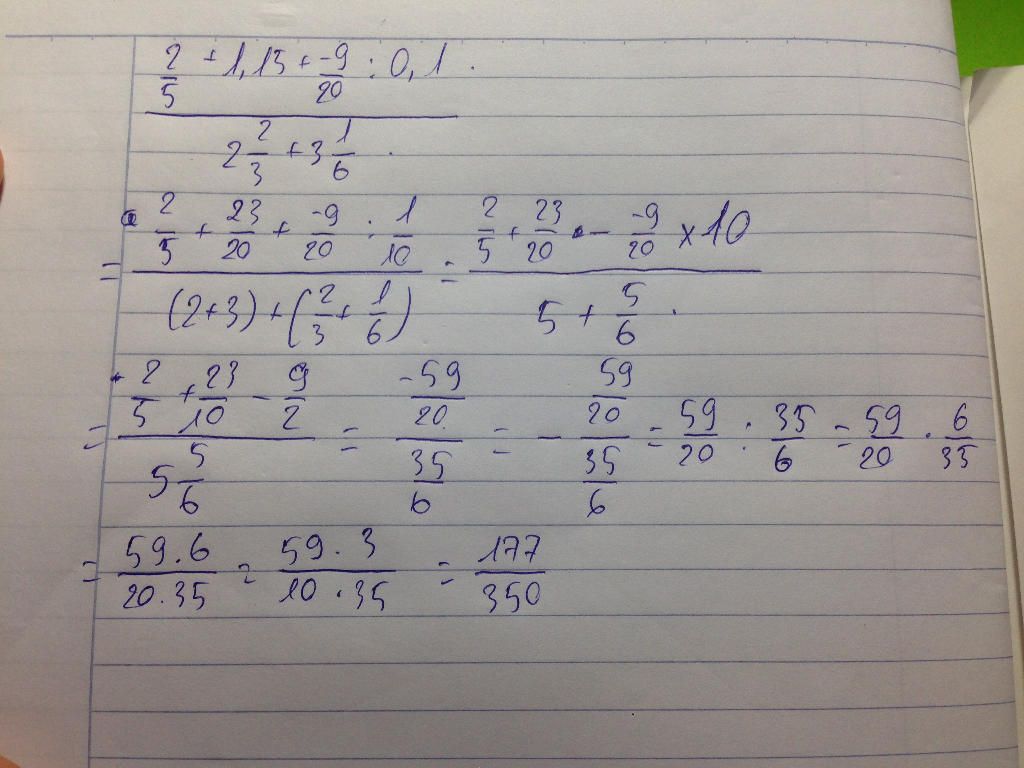 2/5 + 1,15 + -9/20 : 0,1 .
2 2/3 + 3 1/6 .
= 2/5 + 23/20 + -9/20 : 1/10 / (2+3) + (2/3 + 1/6) = 2/5 + 23/20 - -9/20 x 10 / 5 + 5/6 .
= 2/5 + 23/10 - 9/2 / 5 5/6 = -59/20 / 35/6 = - 59/20 / 35/6 = 59/20 : 35/6 = 59/20 . 6/35
= 59.6 / 20.35 = 59.3 / 10.35 = 177/350